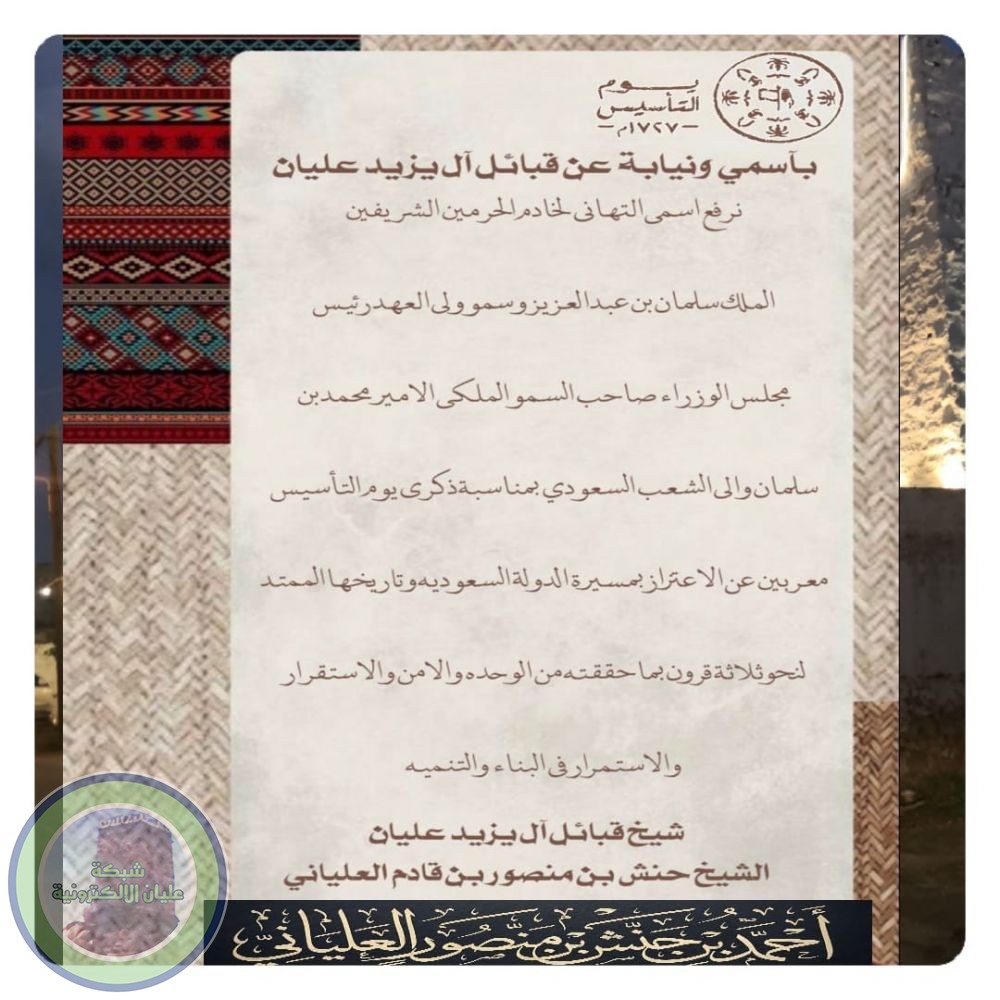 يوم
التأسيس
١٧٢٧م
بآسمي ونيابة عن قبائل آل يزيد عليان
نرفع اسمى التهانى لخادم الحرمين الشريفين
الملك سلمان بن عبدالعزيز وسمو ولى العهد رئيس
مجلس الوزراء صاحب السمو الملكى الامير محمد بن
سلمان والى الشعب السعودي بمناسبة ذكرى يوم التأسيس
معربين عن الاعتزاز بمسيرة الدولة السعوديه وتاريخها الممتد
لنحو ثلاثة قرون بما حققته من الوحده والامن والاستقرار
والاستمرار فى البناء والتنميه
شيخ قبائل آل يزيد عليان
الشيخ حنش بن منصور بن قادم العلياني
شبكة
عليان الالكترونية
أحمد بن حنش بن منصور العلياني